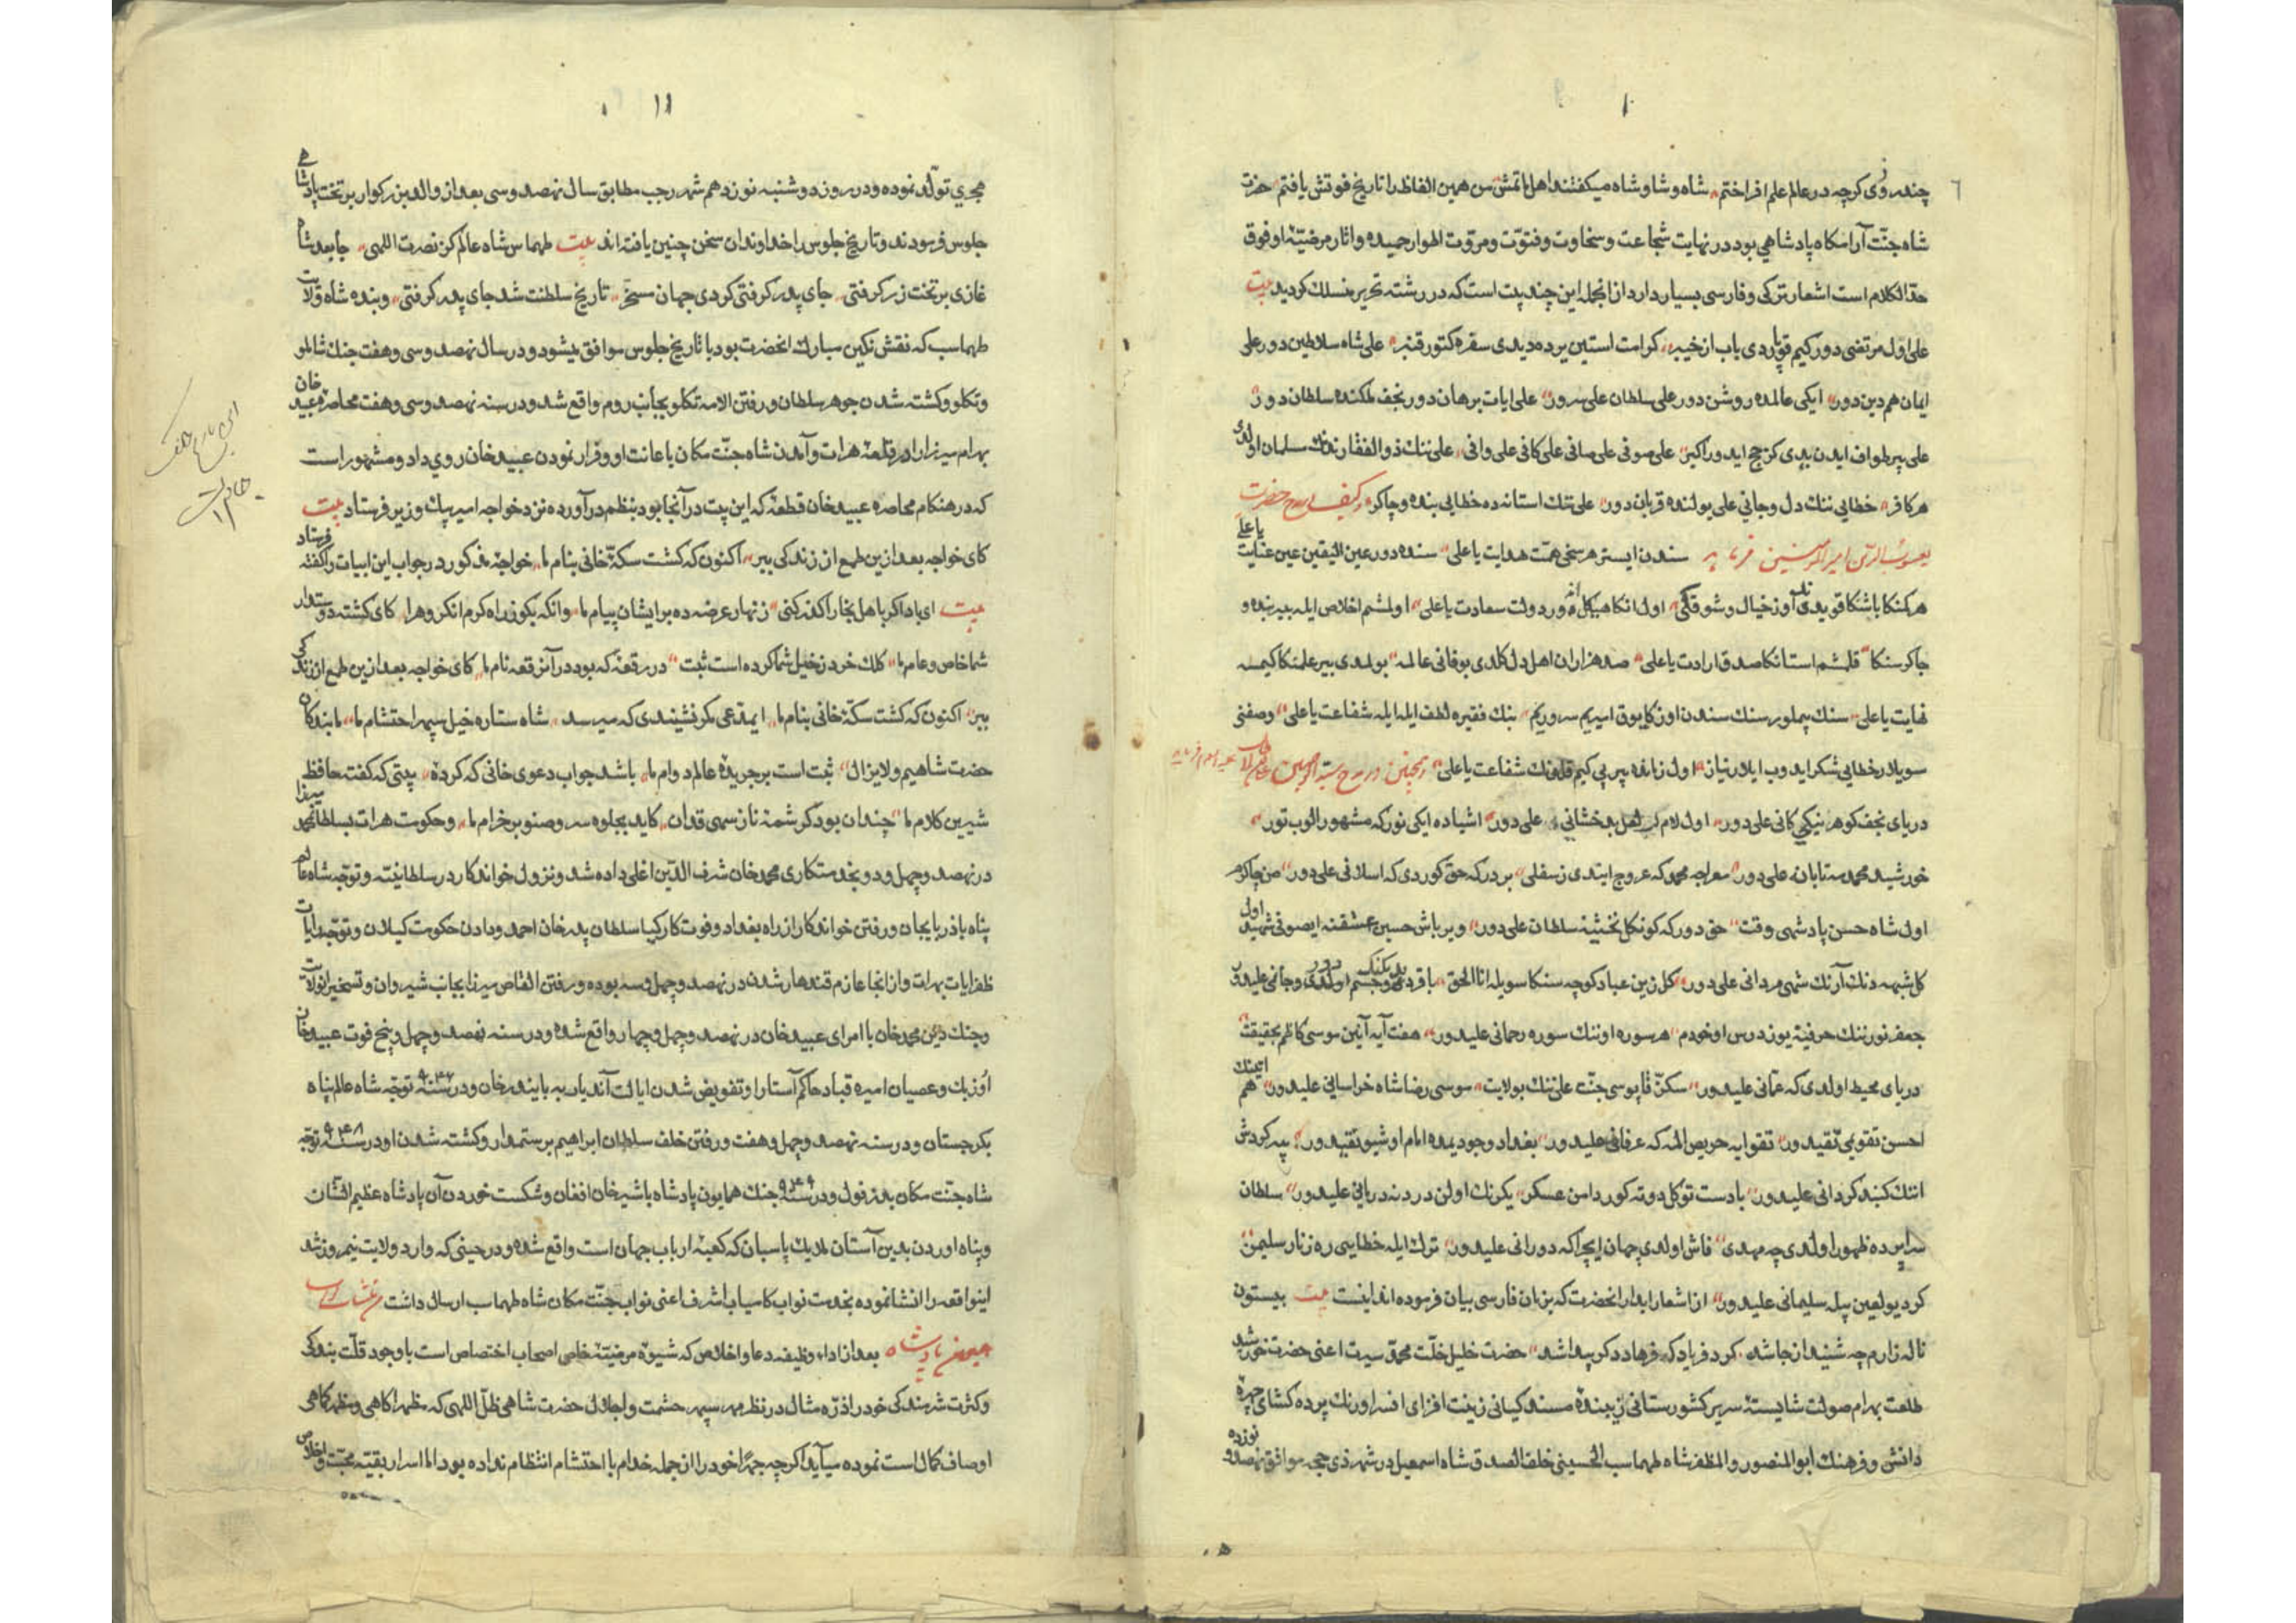 ۱۰
چند روزی کرچه در عالم علم افراختم شاه و شاه و شاه میکفتند اهل ماتمش من همین الفاظ را تاریخ فوتش یافتم حضرت
شاه جنّت آرامکاه پادشاهی بود در نهایت شجاعت و سخاوت و فتوّت و مروّت اطوار حمیده و اثار مرضیّهٔ او فوق
حدّ الکلام است اشعار ترکی و فارسی بسیار دارد از انجمله این چند بیت است که در رشته تحریر منسلک کردید بیت
علی اول مرتضی دور کیم قوپاردی باب از خیبر کرامت استین برده دیدی سفره کتور قنبر علی شاه سلاطین دور علی
ایمان هم دین دور ایکی عالمده روشن دور علی سلطان علی سرور علی ایات برهان دور نجف ملکنده سلطان دور
علی بیر طواف ایدن یدی کز حج ایدور اکبر علی صوفی علی صافی علی کافی علی وافی علی ننک ذوالفقارندنک سلمان اولدی
هر کافر خطایی ننک دل و جانی علی یولنده قربان دور علی ننک استانه ده خطایی بنده و چاکر
یعسوب الدین امیر المؤمنین فرماید سندن ایستر هر سخی همّت هدایت یا علی سنده دور عین الیقین عین عنایت یا علی
هر کنکا باشنکا قویدی اوز خیال و شوقنکی اول انکا هیکل دور دولت سعادت یا علی اولمشم اخلاص ایله بیر بنده و
چاکر سنکا قلمشم استانکا صدق ارادت یا علی صد هزاران اهل دل کلدی بو فانی عالمه بولمدی بیر علمنکا کیمسه
نهایت یا علی سنک سندن اوزکا یوق امیریم سروریم بنک فقیره لطف ایله ایله شفاعت یا علی وصفنی
سویلار خطایی شکر ایدوب ایلار نیاز اول زمانده بیر پی کیم قلغنک شفاعت یا علی
دریای نجف کوهر نیکی کانی علی دور اول لعل بدخشانی علی دور اشیاده ایکی نور که مشهور الوب تور
خورشید محمد مه تابان علی دور معراجه محمد که عروج ایتدی ز سفلی بر درکه حق کوردی که اسلافی علی دور من چاکر
اول شاه حسن پادشهی وقت حق دور که کونکل تختینه سلطان علی دور ویر باش حسین عشقنه ای صوفی شهید اول
جعفر نور ننک حرفینه یوز درس اوخودم هر سوره اوننک سوره رحمانی علیدور هفت آیه آیین موسی کاظم بحقیقت
دریای محیط اولدی که عمّانی علیدور سکز قاپوسی جنّت علی ننک بولایت موسی رضا شاه خراسانی علیدور
احسن تقویمی تقیدور تقوایه حریص المه که عرفانی علیدور بغداد وجودیمده امام اوشبو نقیدور
اننک کنبد کردانی علیدور یا دست توکل دوته کور دامن عسکر یکرنک اولن دردنه دریانی علیدور سلطان
سراپرده ظهور اولدی چه مهدی فاش اولدی جهان ایچرا که دورانی علیدور ترک ایله خطایی ره زنار سلیمن
کرد یو لعین بیله سلیمانی علیدور از اشعار ابدار انحضرت که بزبان فارسی بیان فرموده اند اینست بیت بیستون
ناله زارم چه شنید از جا شد کرد فریاد که فرهاد دکر پیدا شد حضرت خلیل خلّت محمّد سیرت اعنی حضرت خورشید
طلعت بهرام صولت شایستهٔ سریر کشورستانی زیبندهٔ مسند کیانی زینت افزای افسر اورنک پرده کشای چهرهٔ
دانش و فرهنک ابو المنصور و المظفر شاه طهماسب الحسینی خلف الصدق شاه اسمعیل در شهر ذی حجه موافق نهصد و نوزده
۱۱
هجری تولّد نموده و در روز دوشنبه نوزدهم شهر رجب مطابق سال نهصد و سی بعد از والد بزرکوار بر تخت پادشاهی
جلوس فرمودند و تاریخ جلوس را خداوندان سخن چنین یافته اند بیت طهماس شاه عالم کز نصرت اللهی جا بعد شاه
غازی بر تخت زر کرفتی جای پدر کرفتی کردی جهان مسخّر تاریخ سلطنت شد جای پدر کرفتی و بنده شاه ولایت
طهماسب که نقش نکین مبارک انحضرت بود با تاریخ جلوس موافق میشود و در سال نهصد و سی و هفت جنک شاملو
و تکلو و کشته شدن جوهر سلطان و رفتن الامه تکلو بجانب روم واقع شد و در سنه نهصد و سی و هفت محاصره عبید خان
بهرام میرزا را در قلعهٔ هرات و آمدن شاه جنّت مکان باعانت او و فرار نمودن عبید خان روی داد و مشهور است
که در هنکام محاصره عبید خان قطعهٔ که این بیت در آنجا بود بنظم درآورده نزد خواجه امیر بیک وزیر فرستاد بیت
کای خواجه بعد ازین طمع از زندکی ببر اکنون که کشت سکّهٔ خانی بنام ما خواجهٔ مذکور در جواب این ابیات را کفته فرستاد
بیت ای باد اکر باهل بخارا کذر کنی زنهار عرضه ده بر ایشان پیام ما وانکه بکو ز راه کرم انکروه را کای کشته دوستدار
شما خاص و عام ما کلک خرد ز خیل شما کرده است ثبت در رقعهٔ که بود در آنرقعه نام ما کای خواجه بعد ازین طمع از زندکی
ببر اکنون که کشت سکّهٔ خانی بنام ما ایمدّعی مکر نشنیدی که میرسد شاه ستاره خیل سپهر احتشام ما ما بندکان
حضرت شاهیم و لایزال ثبت است بر جریدهٔ عالم دوام ما باشد جواب دعوی خانی که کردهٔ بیتی که کفت حافظ
شیرین کلام ما چندان بود کرشمهٔ ناز سهی قدان کاید بجلوه سرو صنوبر خرام ما و حکومت هرات بسلطان محمد میرزا
در نهصد و چهل و دو بخدمتکاری محمد خان شرف الدّین اغلی داده شد و نزول خواندکار در سلطانیّه و توجّه شاه عالم
پناه باذربایجان و رفتن خواندکار از راه بغداد و فوت کارکیا سلطان پدر خان احمد و دادن حکومت کیلان و توجّه رایات
ظفر ایات بهرات و از انجا عازم قندهار شدن در نهصد و چهل و سه بوده و رفتن القاص میرزا بجانب شیروان و تسخیر انولایت
و جنک دین محمد خان با امرای عبید خان در نهصد و چهل و چهار واقع شده و در سنه نهصد و چهل و پنج فوت عبید خان
اُوزبک و عصیان امیره قباد حاکم آستارا و تفویض شدن ایالت آندیار به بایندر خان و در سنه ۹۴۶ توجّه شاه عالم پناه
بکرجستان و در سنه نهصد و چهل و هفت و رفتن خلف سلطان ابراهیم برستمدار و کشته شدن او در سنه ۹۴۸ توجّه
شاه جنّت مکان بدزفول و در سنه ۹۴۹ جنک همایون پادشاه با شیر خان افغان و شکست خوردن آن پادشاه عظیم الشّان
و پناه اوردن بدین آستان ملایک پاسبان که کعبهٔ ارباب جهان است واقع شده و در حینی که وارد ولایت نیمروز شد
اینواقعه را انشا نموده بخدمت نواب کامیاب اشرف اعنی نواب جنّت مکان شاه طهماسب ارسال داشت
همایون پادشاه بعد از اداء وظیفه دعا و اخلاص که شیوهٔ مرضیّهٔ خاص اصحاب اختصاص است با وجود قلّت بندکی
و کثرت شرمندکی خود را ذرّه مثال در نظر مهر سپهر حشمت و اجلال حضرت شاهی ظلّ اللهی که مظهر اکاهی و مظهر کاهی
اوصاف کمال است نموده میآید اکرچه جهرًا خود را از جمله خدام با احتشام انتظام نداده بود امّا اسرار بقیّه محبّت و اخلاص